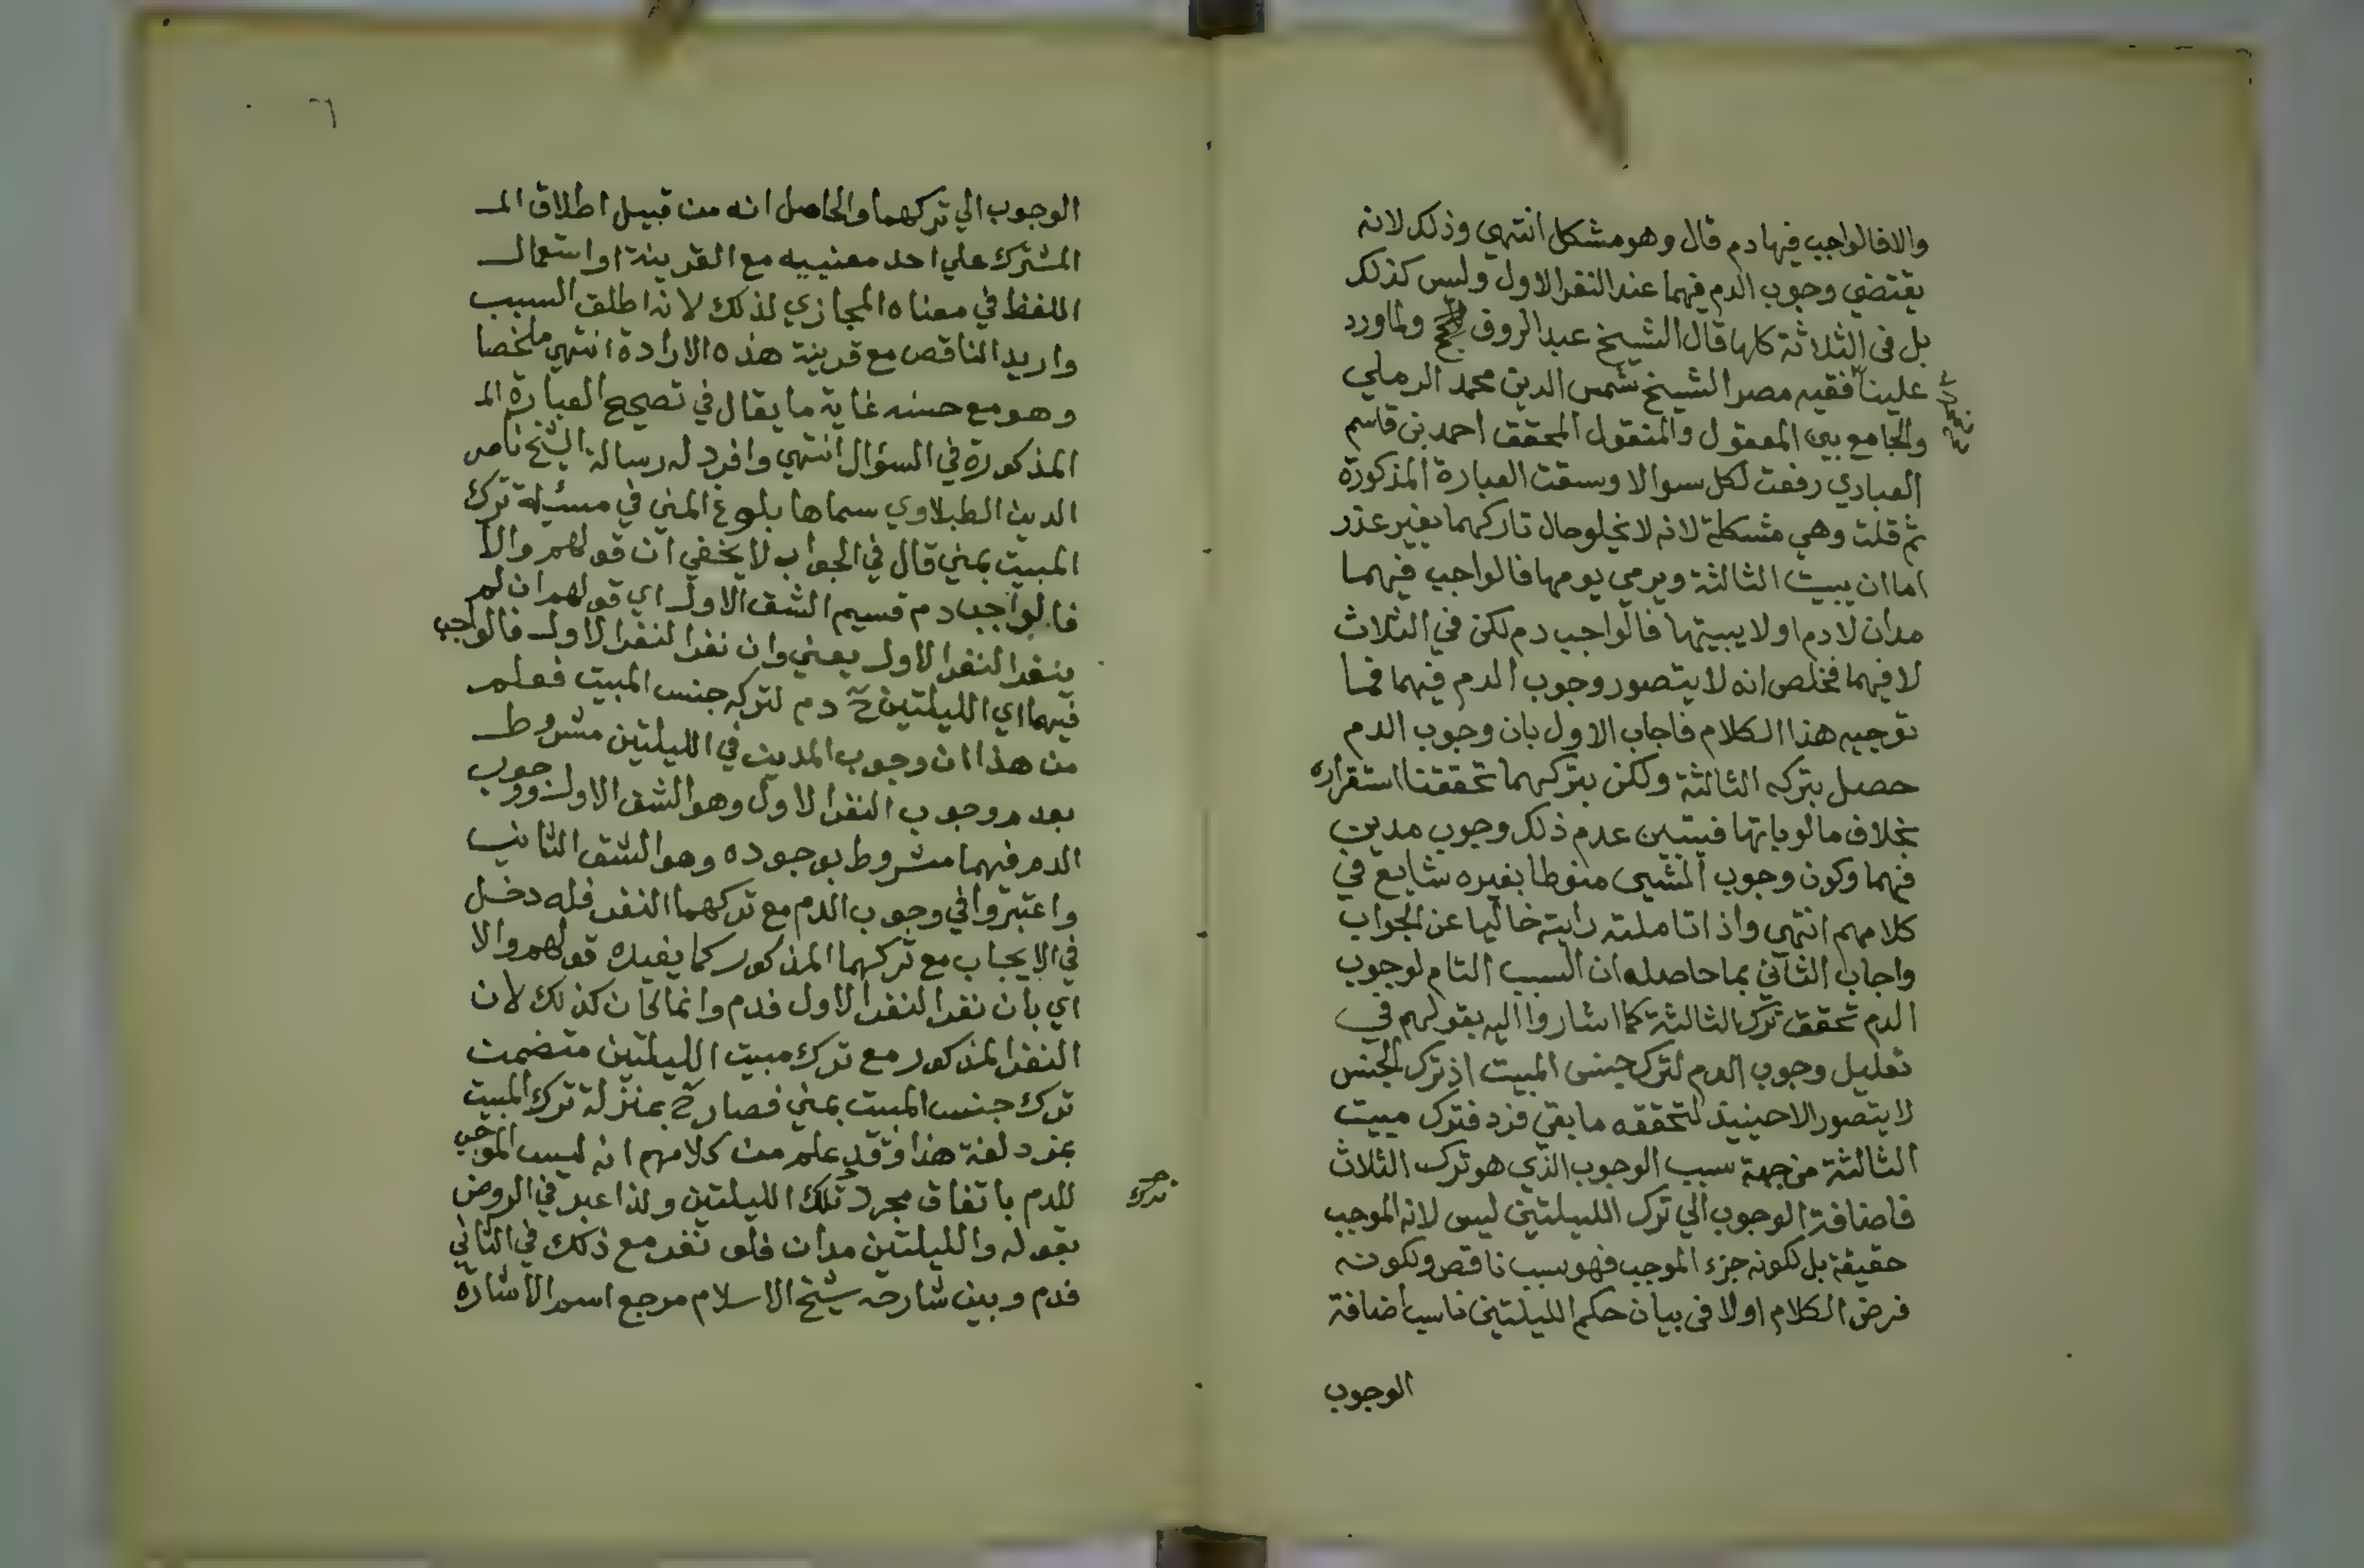 والا فالواجب فيها دم قال وهو مشكل انتهي وذلك لانه
يقتضي وجوب الدم فيهما عند النفر الاول وليس كذلك
بل في الثلاثة كلها قال الشيخ عبد الروف ولما ورد
علينا فقيه مصر الشيخ شمس الدين محمد الرملي
والجامع بين المعقول والمنقول المحقق احمد بن قاسم
العبادي رفعت لكل سوالا وسقت العبارة المذكورة
ثم قلت وهي مشكلة لانه لا يخلو حال تاركهما بغير عذر
اما ان يبيت الثالثة ويرمي يومها فالواجب فيهما
مدان لا دم او لا يبيتها فالواجب دم لكن في الثلاث
لا فيهما فخلص انه لا يتصور وجوب الدم فيهما فما
توجيه هذا الكلام فاجاب الاول بان وجوب الدم
حصل بتركه الثالثة ولكن بتركهما تحققنا استقراره
بخلاف ما لو باتها فيتبين عدم ذلك وجوب مدين
فيهما وكون وجوب الشيى منوطا بغيره شايع في
كلامهم انتهي واذا تاملته رايته خاليا عن الجواب
واجاب الثاني بما حاصله ان السبب التام لوجوب
الدم تحقق ترك الثالثة كما اشاروا اليه بقولهم في
تعليل وجوب الدم لترك جنس المبيت اذ ترك الجنس
لا يتصور الا حينيذ لتحققه ما بقي فرد فترك مبيت
الثالثة من جهة سبب الوجوب الذي هو ترك الثلاث
فاضافة الوجوب الي ترك الليلتين ليس لانه الموجب
حقيقة بل لكونه جزء الموجب فهو سبب ناقص ولكونه
فرض الكلام اولا في بيان حكم الليلتين ناسب اضافة
الوجوب
٦
الوجوب الي تركهما والحاصل انه من قبيل اطلاق المـ
المشترك علي احد معنييه مع القرينة او استعمال
اللفظ في معناه المجازي لذلك لانه اطلق السبب
واريد الناقص مع قرينة هذه الارادة انتهي ملخصا
وهو مع حسنه غاية ما يقال في تصحيح العبارة المـ
المذكورة في السؤال انتهي وافرد له رسالة الشيخ ناصر
الدين الطبلاوي سماها بلوغ المني في مسئلة ترك
المبيت بمني قال في الجواب لا يخفي ان قولهم والا
فالواجب دم قسيم الشق الاول اي قولهم ان لم
ينفر النفر الاول يعني وان نفر النفر الاول فالواجب
فيهما اي الليلتين ح دم لتركه جنس المبيت فعلم
من هذا ان وجوب المدين في الليلتين مشروط
بعدم وجوب النفر الاول وهو الشق الاول ووجوب
الدم فيهما مشروط بوجوده وهو الشق الثاني
واعتبروا في وجوب الدم مع تركهما النفر فله دخل
في الايجاب مع تركهما المذكور كما يفيده قولهم والا
اي بان نفر النفر الاول فدم وانما كان كذلك لان
النفر المذكور مع ترك مبيت الليلتين متضمن
ترك جنس المبيت بمني فصار ح بمنزلة ترك المبيت
بمزدلفة هذا وقد علم من كلامهم انه ليس الموجب
للدم باتفاق مجرد تلك الليلتين ولذا عبر في الروض
ترك
بقوله والليلتين مدان فلو نفر مع ذلك في الثاني
فدم وبين شارحه شيخ الاسلام مرجع اسم الاشارة